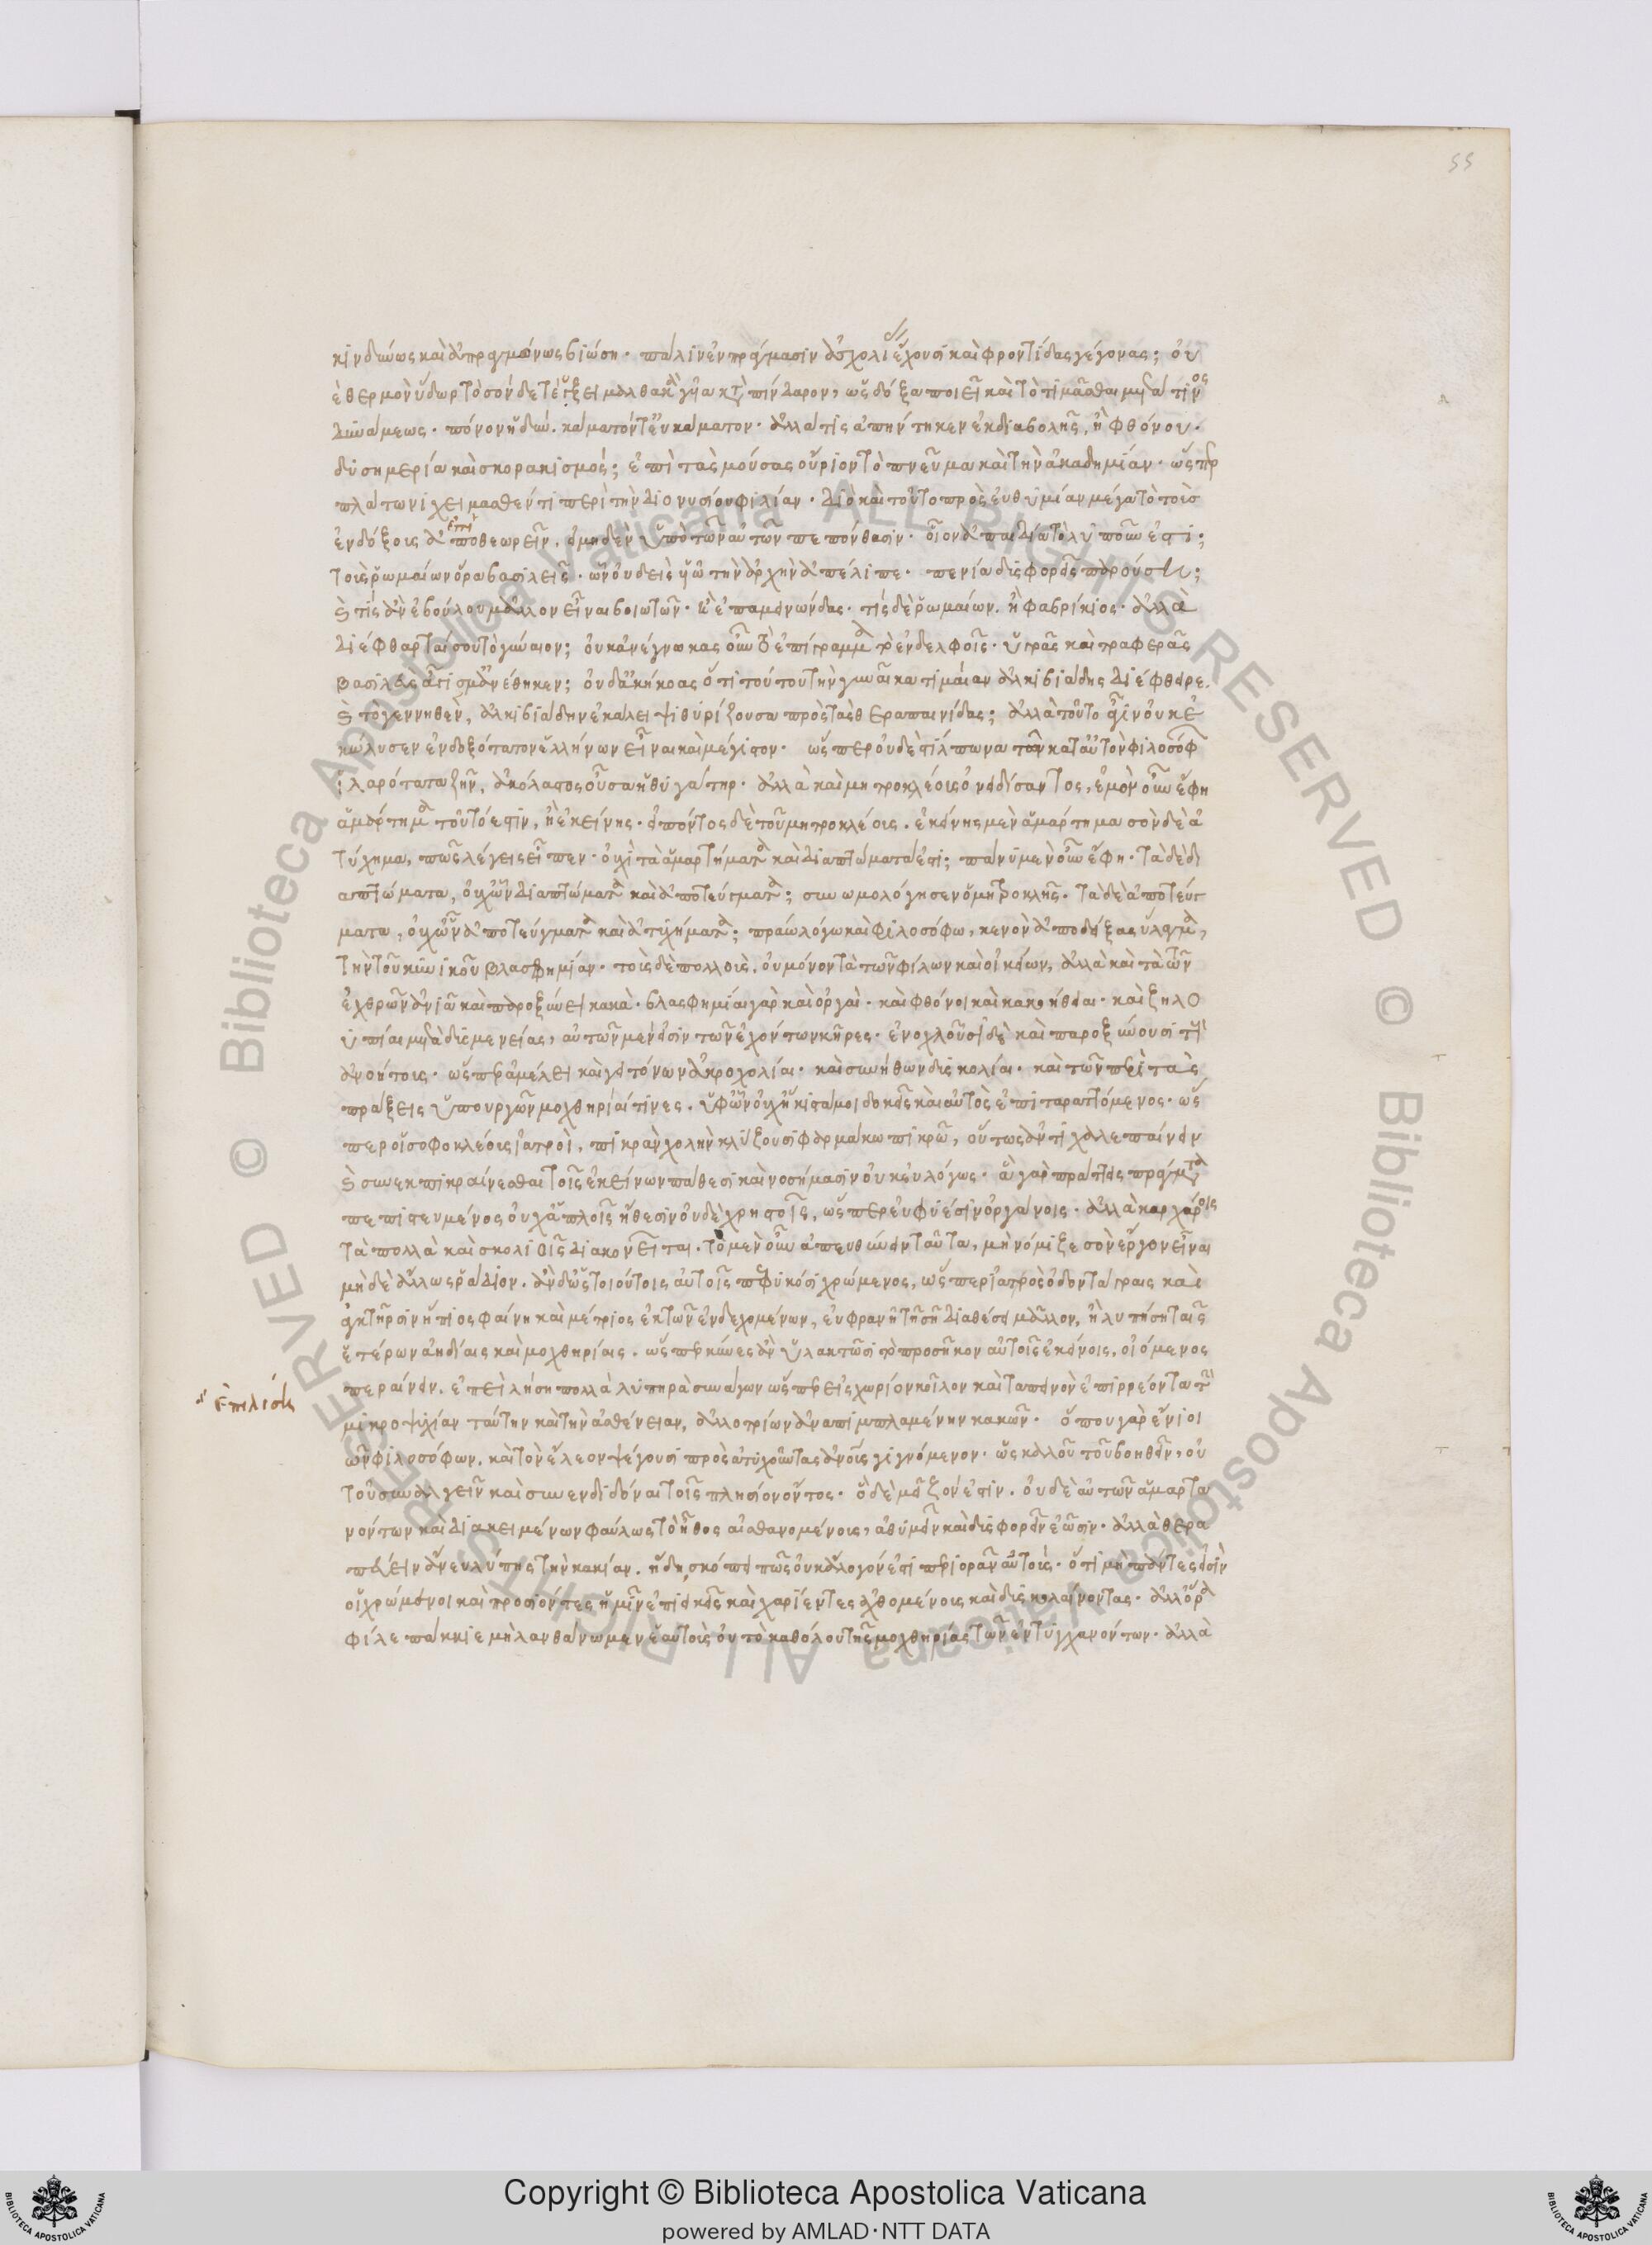 55
κινδύνως καὶ ἀπραγμόνως βιώση· πάλιν ἐν πράγμασιν ἀσχολίας ἔχουσι καὶ φροντίδας γέγονας; οὐ
δὲ θερμὸν ὕδωρ τὸσόν δε τέγξει μαλθακὰ γυῖα κατὰ πίνδαρον, ὡς δόξα ποιεῖ καὶ τὸ τιμᾶσθαι μετά τινος
δυνάμεως· πόνον ἡδύν· κάματόν τ' εὐκάματον· ἀλλά τις ἀπήντηκεν ἐκ διαβολῆς, ἢ φθόνου·
δυσημερία καὶ σκορακισμός; ἐπὶ τὰς μούσας οὔριον τὸ πνεῦμα καὶ τὴν ἀκαδημίαν· ὥσπερ
πλάτωνι χειμασθέντι περὶ τὴν διονυσίου φιλίαν· διὸ καὶ τοῦτο πρὸς εὐθυμίαν μέγα τὸ τοὺς
ἐνδόξους ἀποθεωρεῖν, εἰ μηδὲν ὑπὸ τῶν αὐτῶν πεπόνθασιν· οἷον ἀπαιδία τὸ λυποῦν ἐστί;
τοὺς ῥωμαίων ὅρα βασιλεῖς· ὧν οὐδεὶς υἱῷ τὴν ἀρχὴν ἀπέλιπε· πενία δισφορεῖς παρούση;
καὶ τίς ἂν ἐβούλου μᾶλλον εἶναι βοιωτῶν· ἢ ἐπαμεινώνδας· τίς δὲ ῥωμαίων· ἢ φαβρίκιος· ἀλλὰ
διέφθαρταί σου τὸ γύναιον; οὐκ ἀνέγνωκας οὖν τὸ ἐπίγραμμα τὸ ἐν δελφοῖς· ὑγρᾶς καὶ τραφερᾶς
βασιλεὺς ἆγίς μ' ἀνέθηκεν; οὐδ' ἀκήκοας ὅτι τούτου τὴν γυναῖκα τιμαίαν ἀλκιβιάδης διέφθειρε·
καὶ τὸ γεννηθὲν, ἀλκιβιάδην ἐκάλει ψιθυρίζουσα πρὸς τὰς θεραπαινίδας; ἀλλὰ τοῦτο ἆγιν οὐκ ἐ
κώλυσεν ἐνδοξότατον ἑλλήνων εἶναι καὶ μέγιστον· ὥσπερ οὐδὲ στίλπωνα τῶν κατ' αὐτὸν φιλοσόφων
ἱλαρότατα ζῆν, ἀκόλαστος οὖσα ἡ θυγάτηρ· ἀλλὰ καὶ μητροκλέους ὀνειδίσαντος, ἐμὸν οὖν ἔφη
ἁμάρτημα τοῦτό ἐστιν, ἢ ἐκείνης· εἰπόντος δὲ τοῦ μητροκλέους· ἐκείνης μὲν ἁμάρτημα σὸν δὲ ἀ
τύχημα, πῶς λέγεις εἶπεν· οὐχὶ τὰ ἁμαρτήματα καὶ διαπτώματά ἐστι; πάνυ μὲν οὖν ἔφη· τὰ δὲ δι
απτώματα, οὐχ ὧν διαπτώματα καὶ ἀποτεύγματα; συνωμολόγησεν ὁ μητροκλῆς· τὰ δὲ ἀποτεύγ
ματα, οὐχ ὧν ἀποτεύγματα καὶ ἀτυχήματα; πράω λόγω καὶ φιλοσόφω, κενὸν ἀποδείξας ὕλαγμα,
τὴν τοῦ κυνικοῦ βλασφημίαν· τοὺς δὲ πολλοὺς, οὐ μόνον τὰ τῶν φίλων καὶ οἰκείων, ἀλλὰ καὶ τὰ τῶν
ἐχθρῶν ἀνιᾶ καὶ παροξύνει κακὰ· βλασφημίαι γὰρ καὶ ὀργαὶ· καὶ φθόνοι καὶ κακοήθειαι· καὶ ζηλο
τυπίαι μετὰ δυσμενείας, αὐτῶν μέν εἰσιν τῶν ἐχόντων κῆρες· ἐνοχλοῦσι δὲ καὶ παροξύνουσι τοὺς
ἀνοήτους· ὥσπερ ἀμέλει καὶ γειτόνων ἀκροχολίαι· καὶ συνήθων δισκολίαι· καὶ τῶν περὶ τὰς
πράξεις ὑπουργῶν μοχθηρίαι τινες· ὑφ' ὧν οὐχ ἥκιστά μοι δοκεῖς καὶ αὐτὸς ἐπιταραττόμενος· ὥσ
περ οἱ σοφοκλέους ἰατροὶ, πικρὰν χολὴν κλύζουσι φαρμάκω πικρῶ, οὕτως ἀντιχαλεπαίνειν
καὶ συνεκπικραίνεσθαι τοῖς ἐκείνων πάθεσι καὶ νοσήμασιν οὐκ εὐλόγως· ἃ γὰρ πράττεις πράγματα
πεπιστευμένος οὐχ ἁπλοῖς ἤθεσιν οὐδὲ χρηστοῖς, ὥσπερ εὐφυέσιν ὀργάνοις· ἀλλὰ καρχάροις
τὰ πολλὰ καὶ σκολιοῖς διακονεῖται· τὸ μὲν οὖν ἀπευθύνειν ταῦτα, μὴ νόμιζε σὸν ἔργον εἶναι
μηδὲ ἄλλως ῥάδιον· ἂν δ' ὡς τοιούτοις αὐτοῖς πεφυκόσι χρώμενος, ὥσπερ ἰατρὸς ὀδοντάγραις καὶ
ἀγκτῆρσιν ἤπιος φαίνη καὶ μέτριος ἐκ τῶν ἐνδεχομένων, εὐφρανῆ τῆ σῆ διαθέσει μᾶλλον, ἢ λυπήση ταῖς
ἑτέρων ἀηδίαις καὶ μοχθηρίαις· ὥσπερ κύνες ἂν ὑλακτῶσι τὸ προσῆκον αὐτοῖς ἐκείνοις, οἰόμενος
περαίνειν· ἐπεὶ λήση πολλὰ λυπηρὰ συνάγων ὥσπερ εἰς χωρίον κοῖλον καὶ ταπεινὸν ἐπιρρέοντα τὴν
μικροψυχίαν ταύτην καὶ τὴν ἀσθένειαν, ἀλλοτρίων ἀναπιμπλαμένην κακῶν· ὅπου γὰρ ἔνιοι
τῶν φιλοσόφων, καὶ τὸν ἔλεον ψέγουσι πρὸς ἀτυχοῦντας ἀνοις γιγνόμενον· ὡς καλοῦ τοῦ βοηθεῖν, οὐ
τοῦ συναλγεῖν καὶ συνενδιδόναι τοῖς πλησίον ὄντος· ὃ δὲ μεῖζόν ἐστιν· οὐδὲ αὑτῶν ἁμαρτα
νόντων καὶ διακειμένων φαύλως τὸ ἦθος αἰσθανομένοις, ἀθυμεῖν καὶ δισφορεῖν ἐῶσιν· ἀλλὰ θερα
πεύειν ἄνευ λύπης τὴν κακίαν· ἤδη, σκόπει πῶς οὐκ ἄλογόν ἐστι περιορᾶν αὑτοὺς· ὅτι μὴ πάντες εἰσὶν
οἱ χρώμενοι καὶ προσιόντες ἡμῖν ἐπιεικεῖς καὶ χαρίεντες ἀχθομένους καὶ δισκολαίνοντας· ἀλλ' ὅρα
φίλε πάκκιε μὴ λανθάνωμεν ἑαυτοὺς οὐ τὸ καθόλου τῆς μοχθηρίας τῶν ἐντυγχανόντων· ἀλλὰ
Copyright © Biblioteca Apostolica Vaticana
powered by AMLAD·NTT DATA